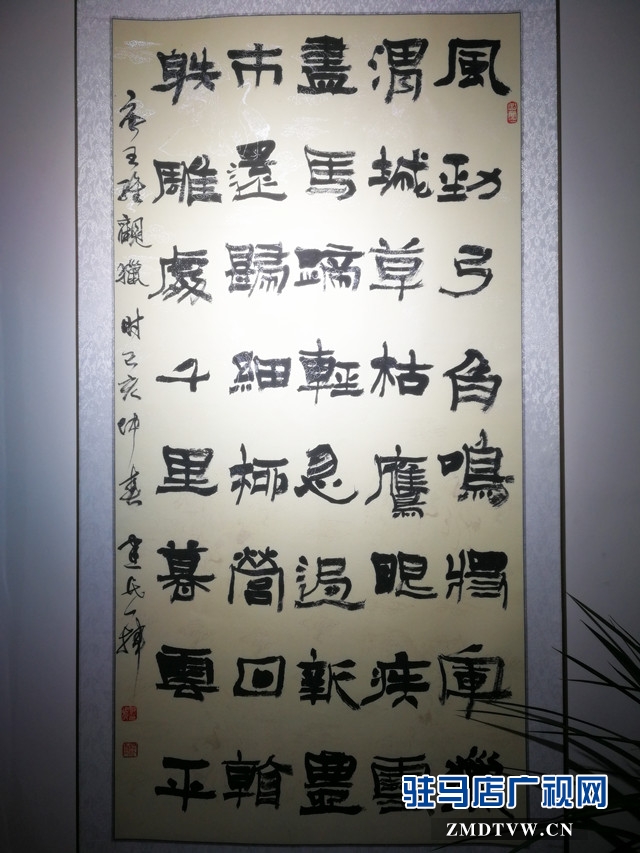 風勁弓角鳴將軍獵
渭城草枯鷹眼疾雪
盡馬蹄輕急過新豊
市還歸細柳營回看
䠶雕處千里暮雲平
唐王維觀獵 时己亥仲春 建民一揮
驻马店广视网
ZMDTVW.CN